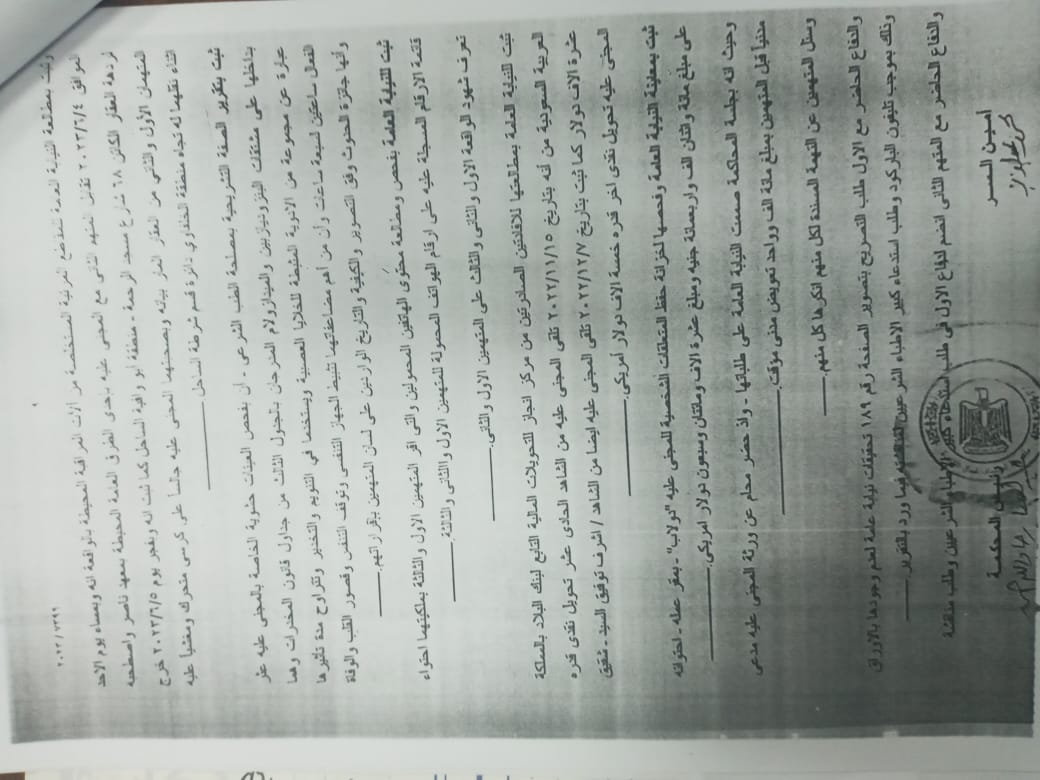 ٢٠٢٣/٧٢٩٩
٩
وثبت بمطالعة النيابة العامة للمقاطع المرئية المستخلصة من آلات المراقبة المحيطة بالواقعة انه وبمساء يوم الاحد
الموافق ٢٠٢٣/٦/٤ تقابل المتهم الثاني مع المجنى عليه بإحدى الطرق العامة المحيطة بمعهد ناصر واصطحبه
لردهة العقار الكائن ٦٨ شارع مسجد الرحمة - منطقة أبو رافية الساحل كما ثبت انه وبفجر يوم ٢٠٢٣/٦/٥ خرج
المتهمان الأول والثاني من العقار المار بيانه وبصحبتهما المجنى عليه جالسا على كرسي متحرك ومغشيا عليه
اثناء نقلهما له تجاه منطقة الخلفاوي دائرة قسم شرطة الساحل.
ثبت بتقرير الصفة التشريحية بمصلحة الطب الشرعي - أن بفحص العينات حشوية الخاصة بالمجنى عليه عثر
بداخلها على مشتقات البنزوديازبين والميدازولام المدرجان بالجدول الثالث من جداول قانون المخدرات وهما
عبارة عن مجموعة من الأدوية المثبطة للخلايا العصبية ويستخدما في التنويم والتخدير وتتراوح مدة تأثيرها
الفعال ساعتين لسبعة ساعات وأن من أهم مضاعفاتهما تثبيط الجهاز التنفسي وتوقف التنفس وقصور القلب والوفاة
وأنها جائزة الحدوث وفق التصوير والكيفية والتاريخ الواردين على لسان المتهمين بإقراراتهم.
ثبت للنيابة العامة بفحص ومطالعة محتوى الهاتفين المحمولين والتي اقر المتهمين الأول والثالثة بملكيتهما احتواء
قائمة الارقام المسجلة عليه على ارقام الهواتف المحمولة للمتهمين الأول والثاني والثالثة.
تعرف شهود الواقعة الأول والثاني والثالث على المتهمين الأول والثاني.
ثبت للنيابة العامة بمطالعتها للافادتين الصادرتين من مركز انجاز للتحويلات المالية التابع لبنك البلاد بالمملكة
العربية السعودية من أنه بتاريخ ٢٠٢٢/١١/١٥ تلقى المجنى عليه من الشاهد الحادى عشر تحويل نقدى قدره
عشرة الاف دولار كما ثبت بتاريخ ٢٠٢٢/١٢/٧ تلقى المجنى عليه ايضا من الشاهد / اشرف توفيق السيد - شقيق
المجنى عليه تحويل نقدى اخر قدره خمسة الاف دولار أمريكي.
ثبت بمعاينة النيابة العامة وفحصها لخزانة حفظ المتعلقات الشخصية للمجنى عليه "دولاب" - بمقر عمله - احتوائه
على مبلغ مائة واثنان الف واربعمائة جنيه ومبلغ عشرة الاف ومائتان وسبعون دولار امريكي.
وحيث انه بجلسة المحاكمة صممت النيابة العامة على طلباتها - واذ حضر محام عن ورثة المجنى عليه مدعى
مدنيا قبل المتهمين بمبلغ مائة الف وواحد تعويض مدنى مؤقت.
وسئل المتهمين عن التهمة المسندة لكل منهم انكرها كل منهم.
والدفاع الحاضر مع الأول طلب التصريح بتصوير الصفحة رقم ١٨٩ تحقيقات نيابة عامة لعدم وجودها بالأوراق
وذلك بموجب تليفون الباركود وطلب استدعاء كبير الاطباء الشرعيين لمناقشته فيما ورد بالتقرير.
والدفاع الحاضر مع المتهم الثاني انضم لدفاع الأول في طلب استدعاء كبير الأطباء الشرعيين وطلب مناقشة
أمين السر
رئيس المحكمة